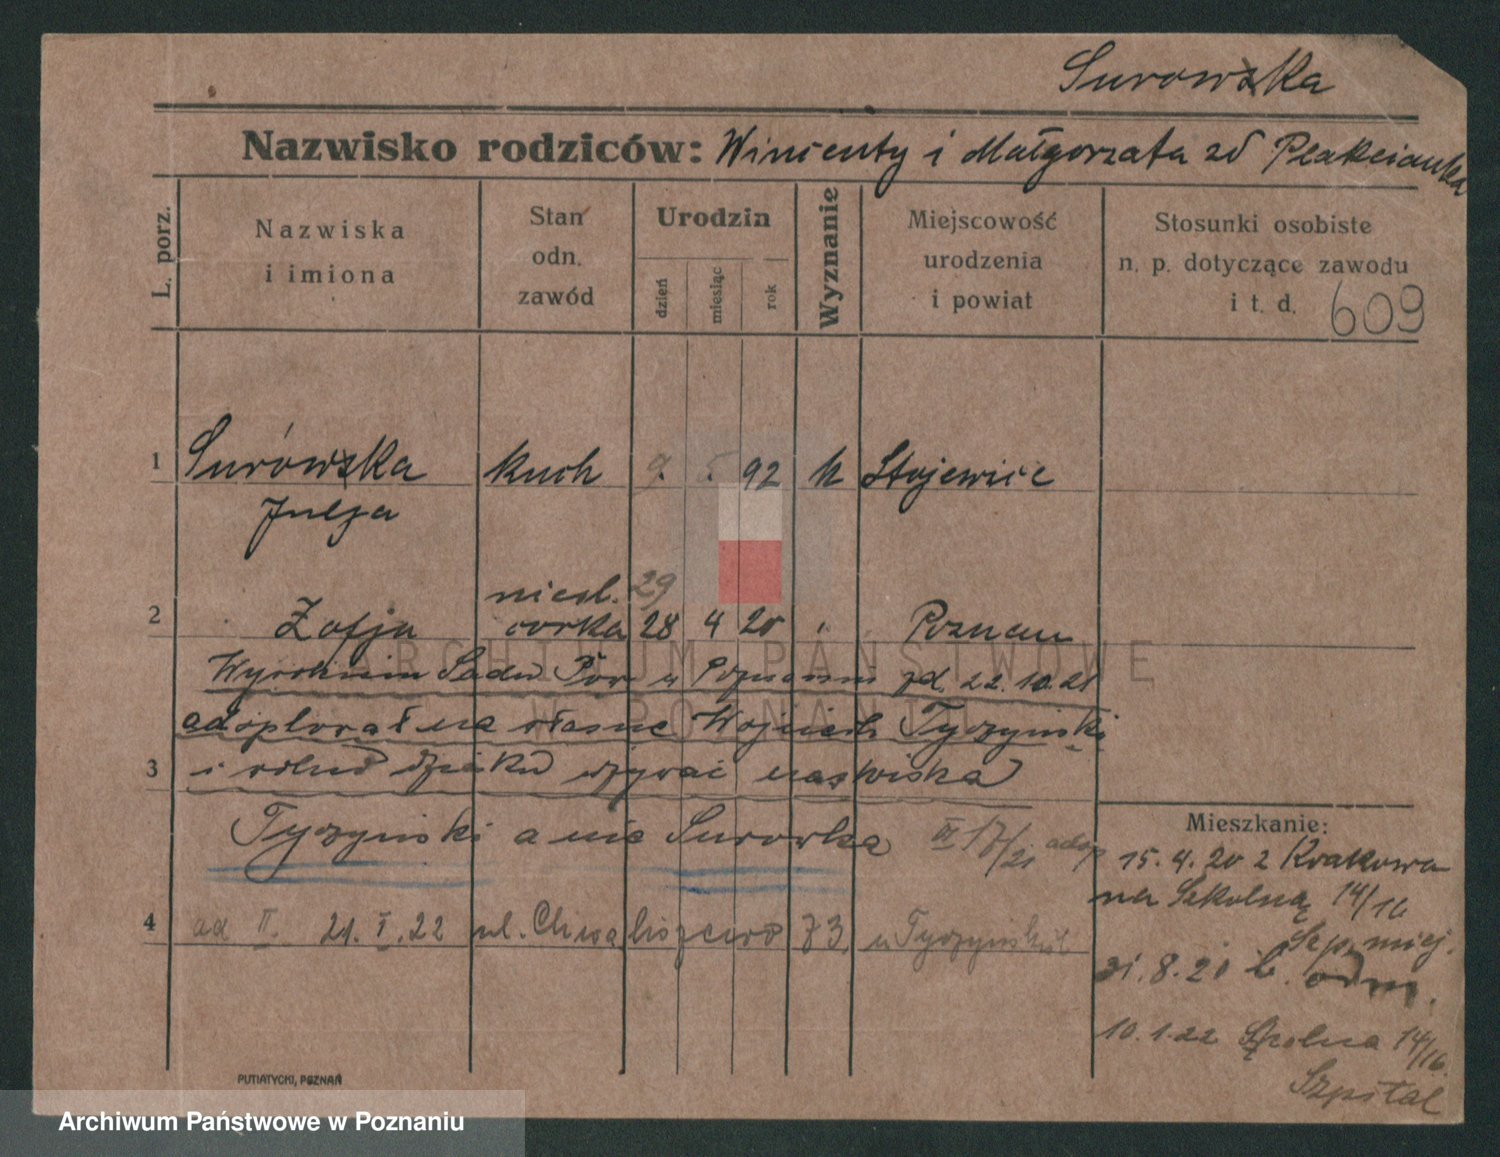 Surowska
Nazwisko rodziców: Wincenty i Małgorzata zd
L. porz.
Nazwiska
i imiona
Stan
odn.
zawód
Urodzin
dzień
miesiąc
rok
Wyznanie
Miejscowość
urodzenia
i powiat
Stosunki osobiste
n. p. dotyczące zawodu
i t. d.
609
1 Surówka kuch 9. 5. 92 k Stojewice
Julja
nieśl. 29
2 Zofja córka 28 4 20 Poznań
Wyrokiem Sadu Pow w Poznaniu zd. 22.10.21
adoptował na własne Wojciech Tyczyński
3 i wolno dziecku używać nazwiska
Tyczyński a nie Surowka IX 17/21 adop
4 ad II. 21. I. 22 ul. Chwaliszewo 73, u Tyczyńskich
Mieszkanie:
15. 4. 20 z Krakowa
na Szkolną 14/16
Szp. miej.
31. 8. 20 b. odm.
10. 1. 22 Szkolna 14/16.
Szpital
PUTIATYCKI, POZNAŃ
ARCHIWUM PAŃSTWOWE
W POZNANIU
Archiwum Państwowe w Poznaniu